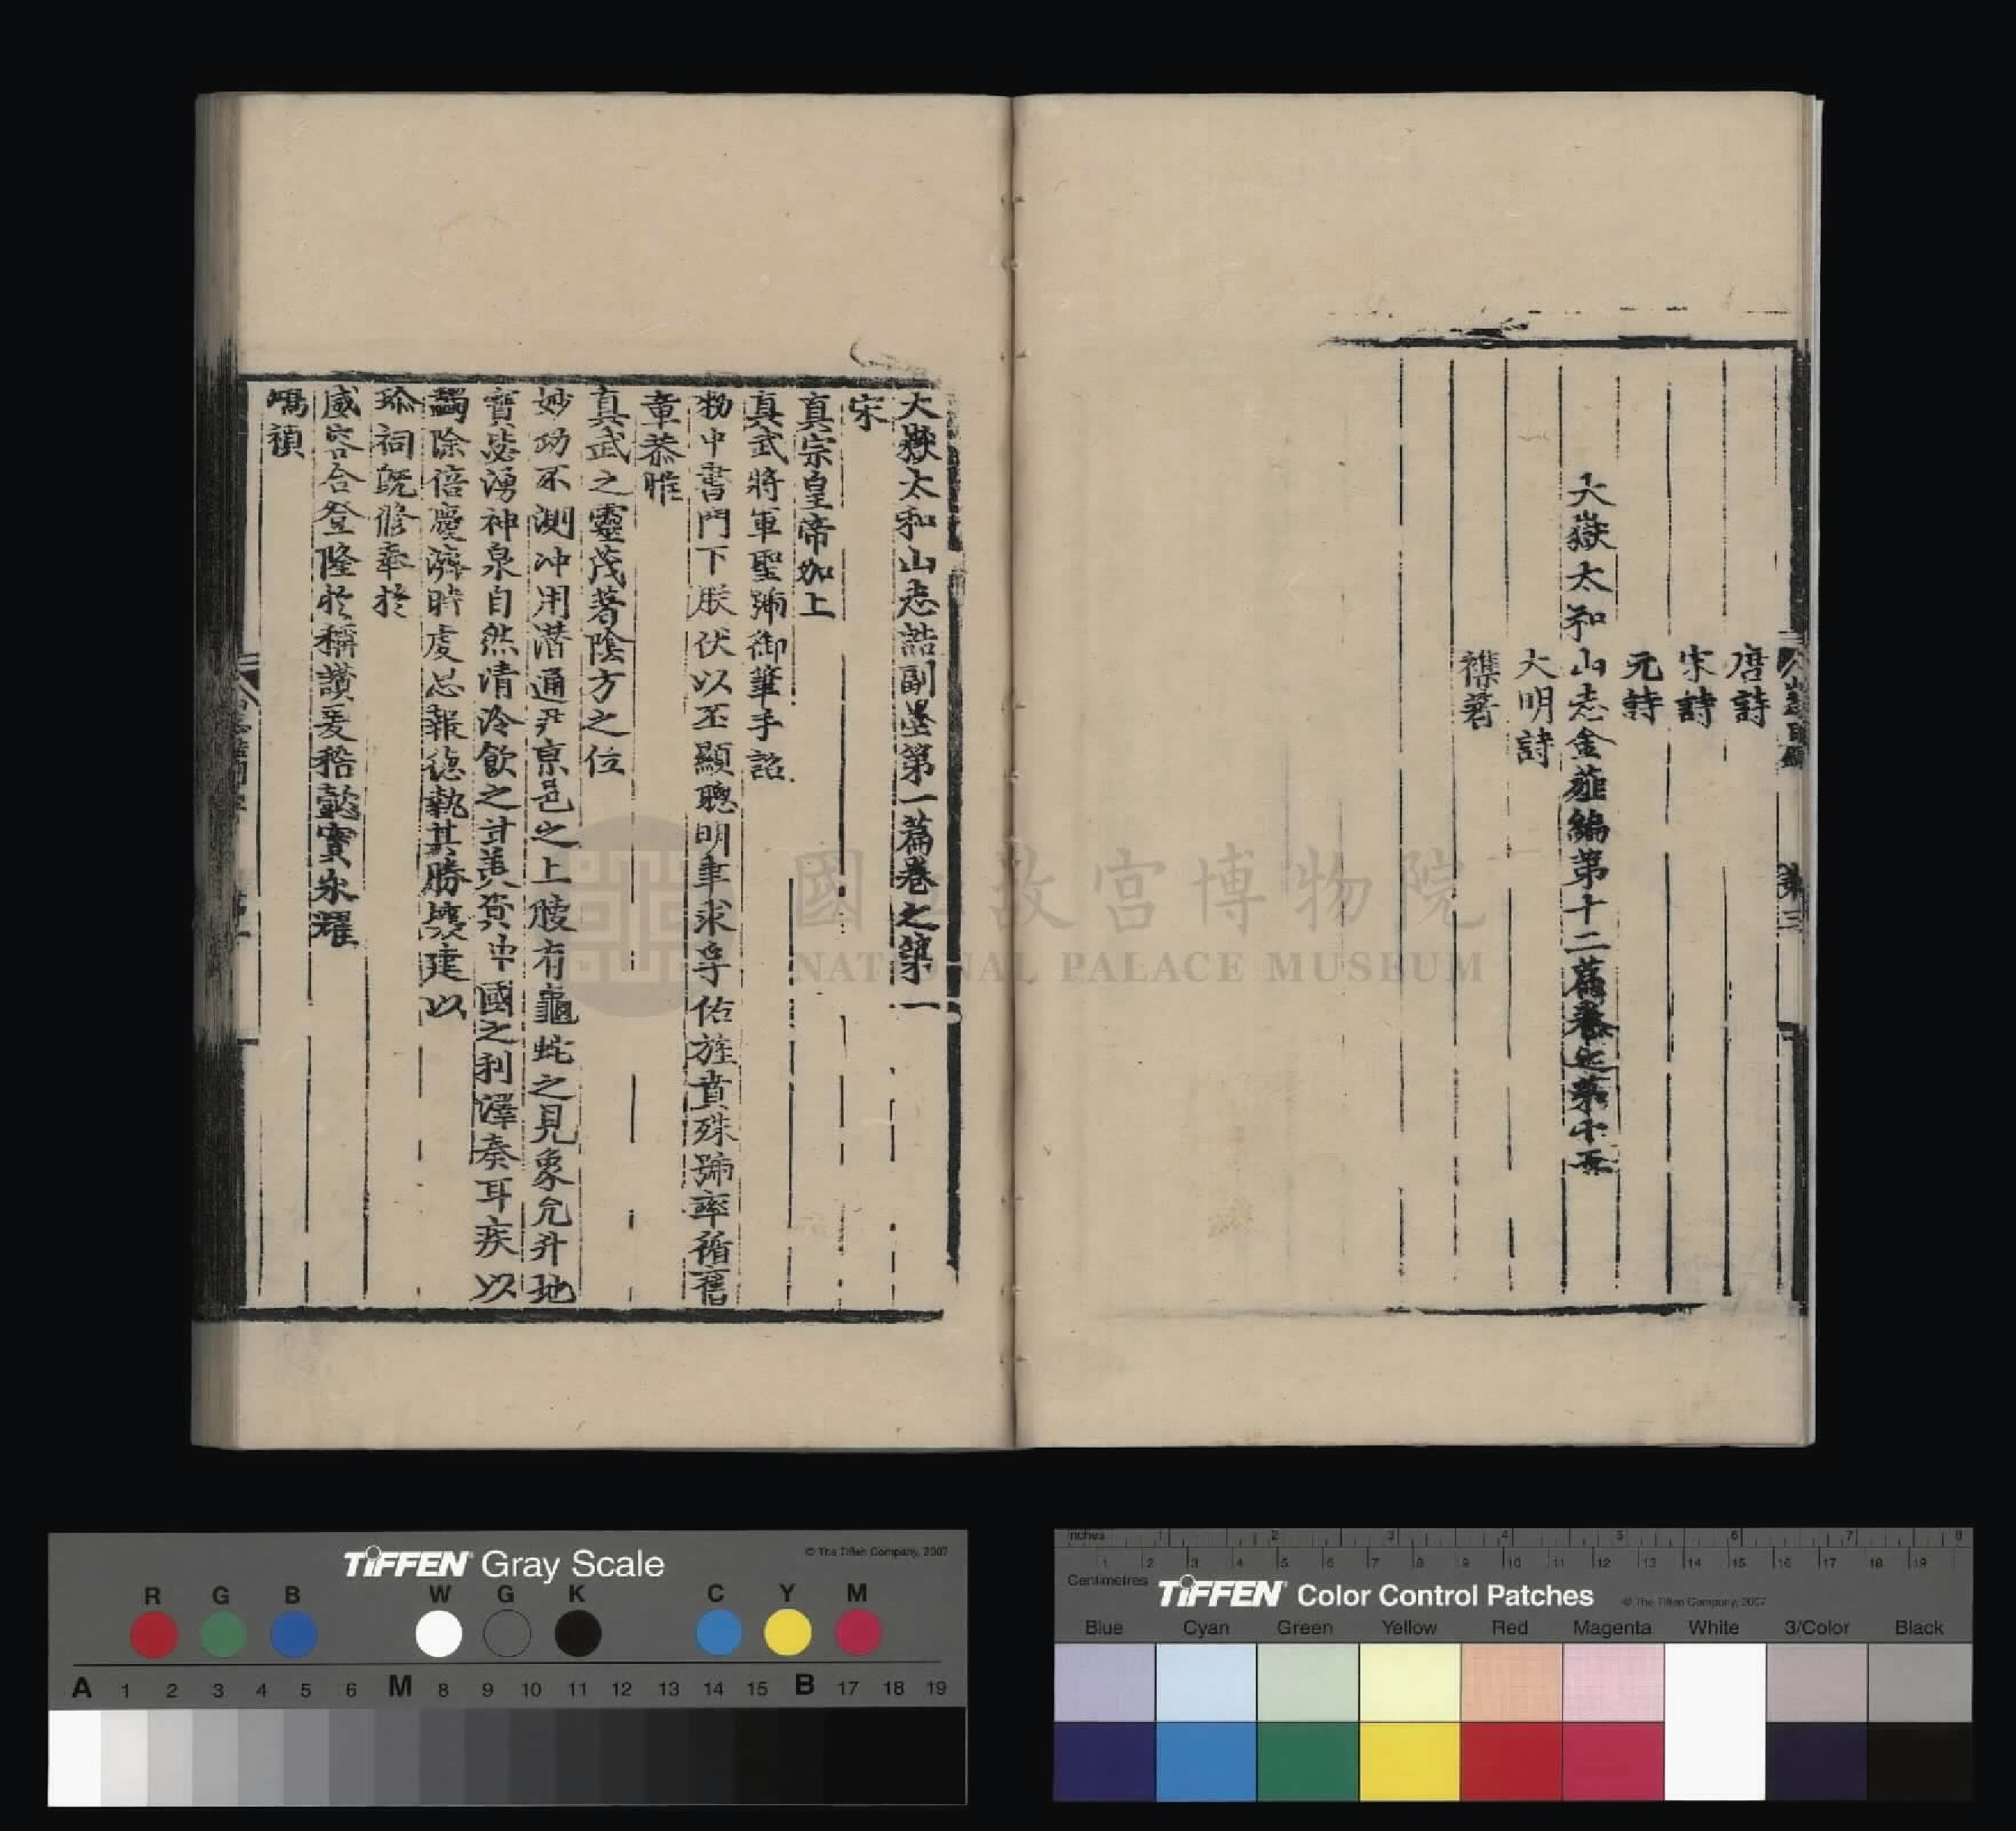 唐詩
宋詩
元詩
大嶽太和山志金薤編第十二篇卷之第十五
大明詩
襍著
大嶽太和山志誥副墨第一篇卷之第一
宋
真宗皇帝加上
真武將軍聖號御筆手詔
勑中書門下朕伏以丕顯聰明聿求孚佑旌賁殊號率循舊
章恭惟
真武之靈茂著陰方之位
妙功不測冲用潛通尹京邑之上腴有龜蛇之見象允升地
寶毖湧神泉自然清泠飲之甘美資中國之利澤奏耳疾以
蠲除倍慶濟時虔思報德執其勝壤建以
珍祠既修奉於
威容合登隆於稱讚爰稽懿實永耀
鴻禎
國立故宮博物院
NATIONAL PALACE MUSEUM
TIFFEN Gray Scale
© The Tiffen Company, 2007
R G B W G K C Y M
A 1 2 3 4 5 6 M 8 9 10 11 12 13 14 15 B 17 18 19
Inches 1 2 3 4 5 6 7 8
1 2 3 4 5 6 7 8 9 10 11 12 13 14 15 16 17 18 19
Centimetres
TIFFEN Color Control Patches
© The Tiffen Company, 2007
Blue Cyan Green Yellow Red Magenta White 3/Color Black